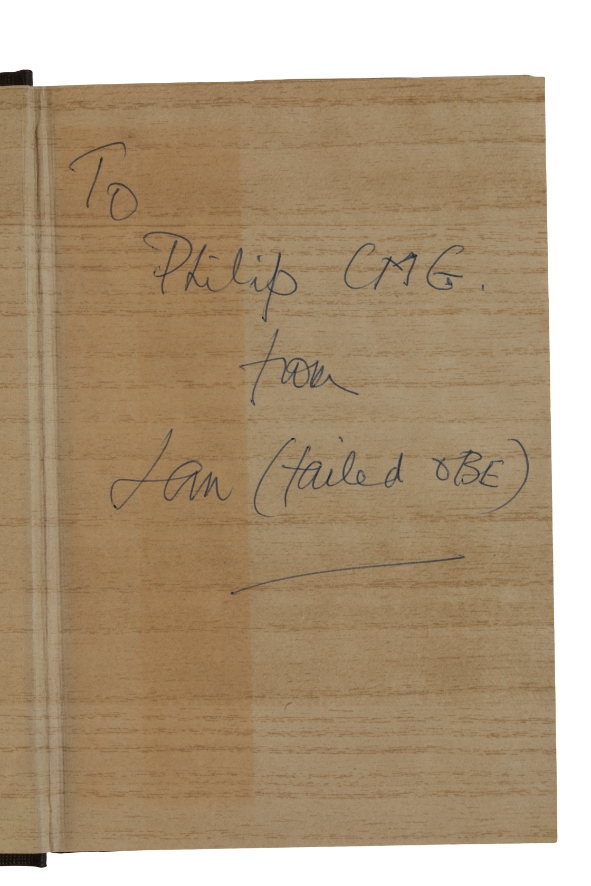 To
Philip CMG.
from
Ian (failed OBE)